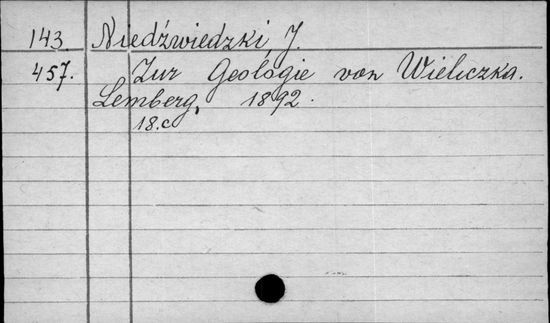 143 Niedźwiedzki, J.
457. Zur Geologie von Wieliczka.
Lemberg, 1892.
18.c